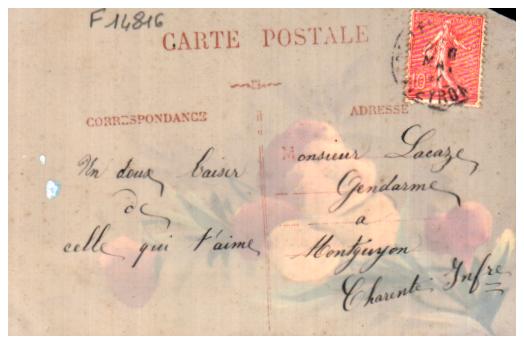 F 14816
CARTE POSTALE
CORRESPONDANCE
Un doux baiser
de
celle qui t'aime
ADRESSE
Monsieur Lacaze
Gendarme
a
Montguyon
Charente Infre
10
MAI